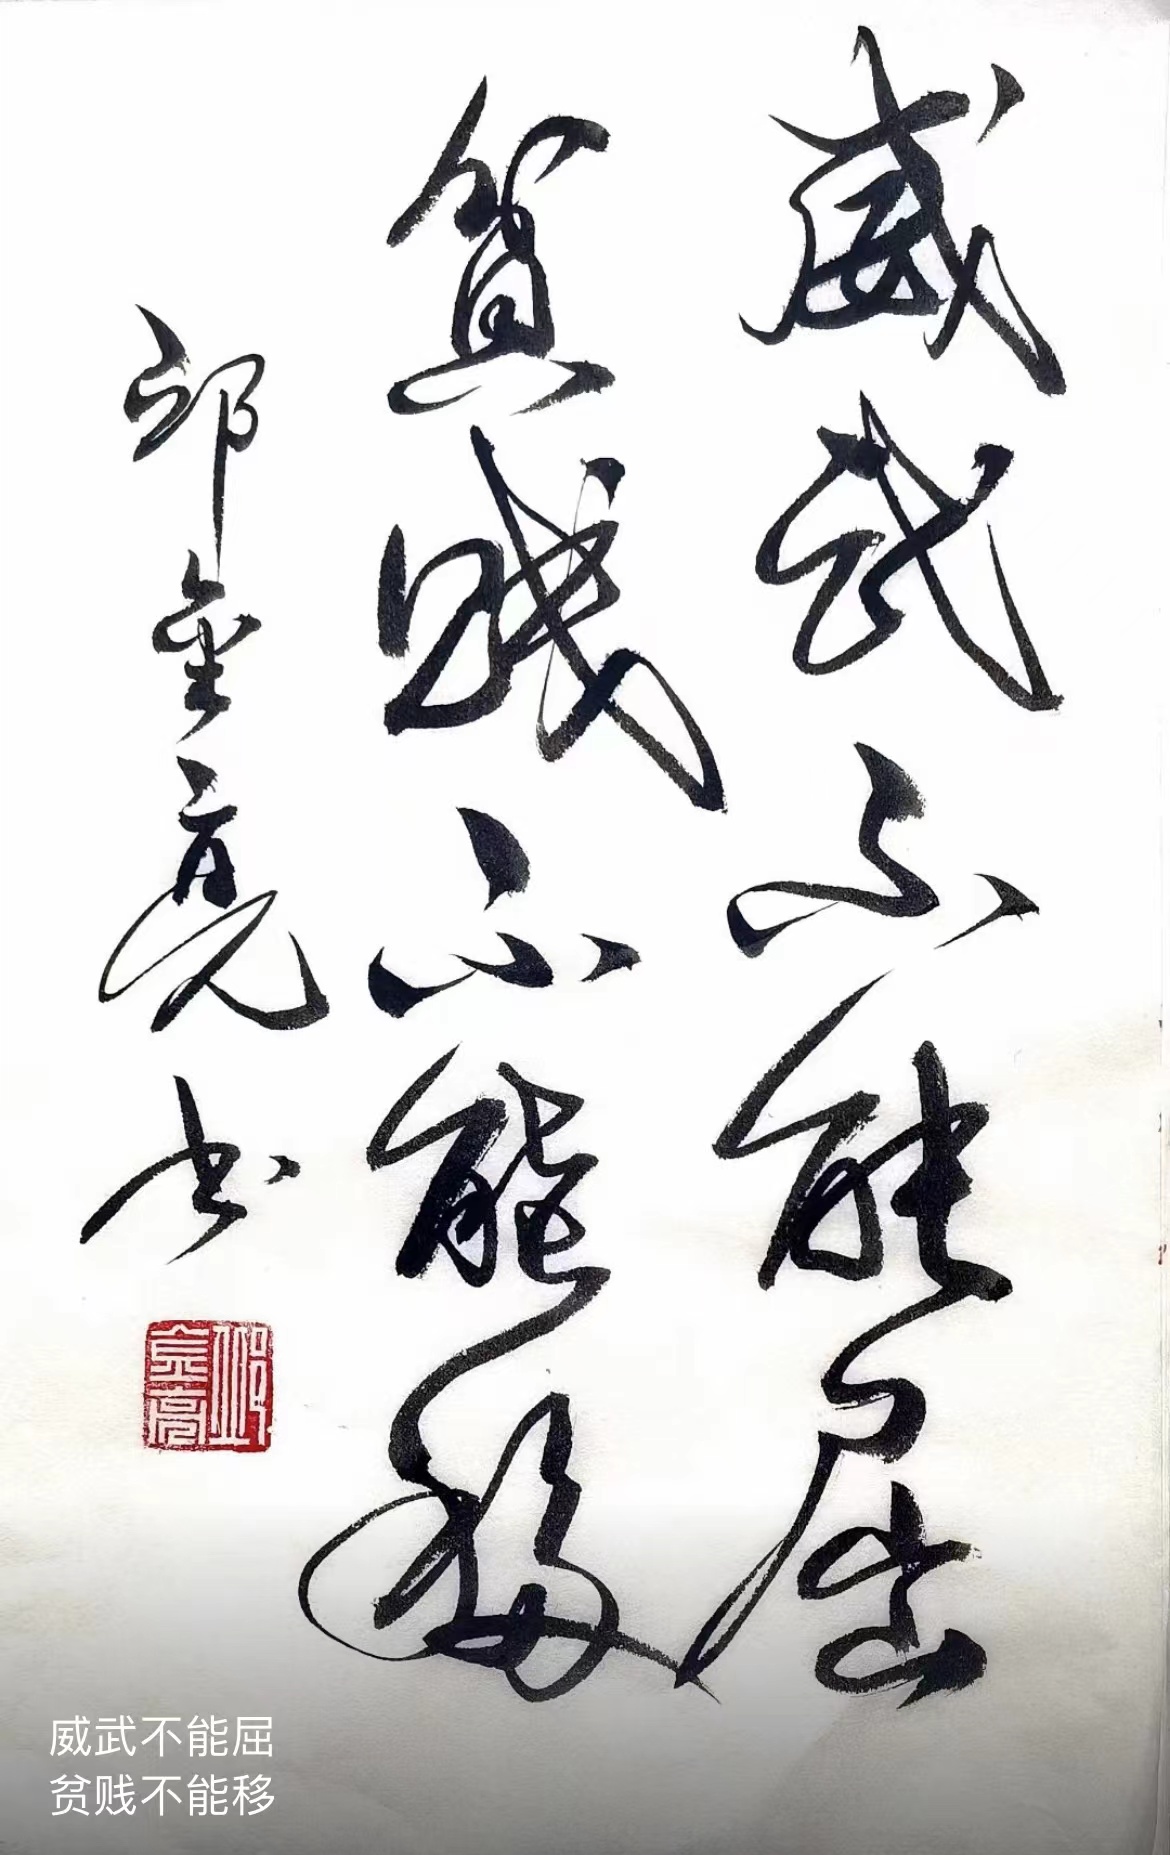 威武不能屈
贫贱不能移
邱金亮书
邱金亮
威武不能屈
贫贱不能移